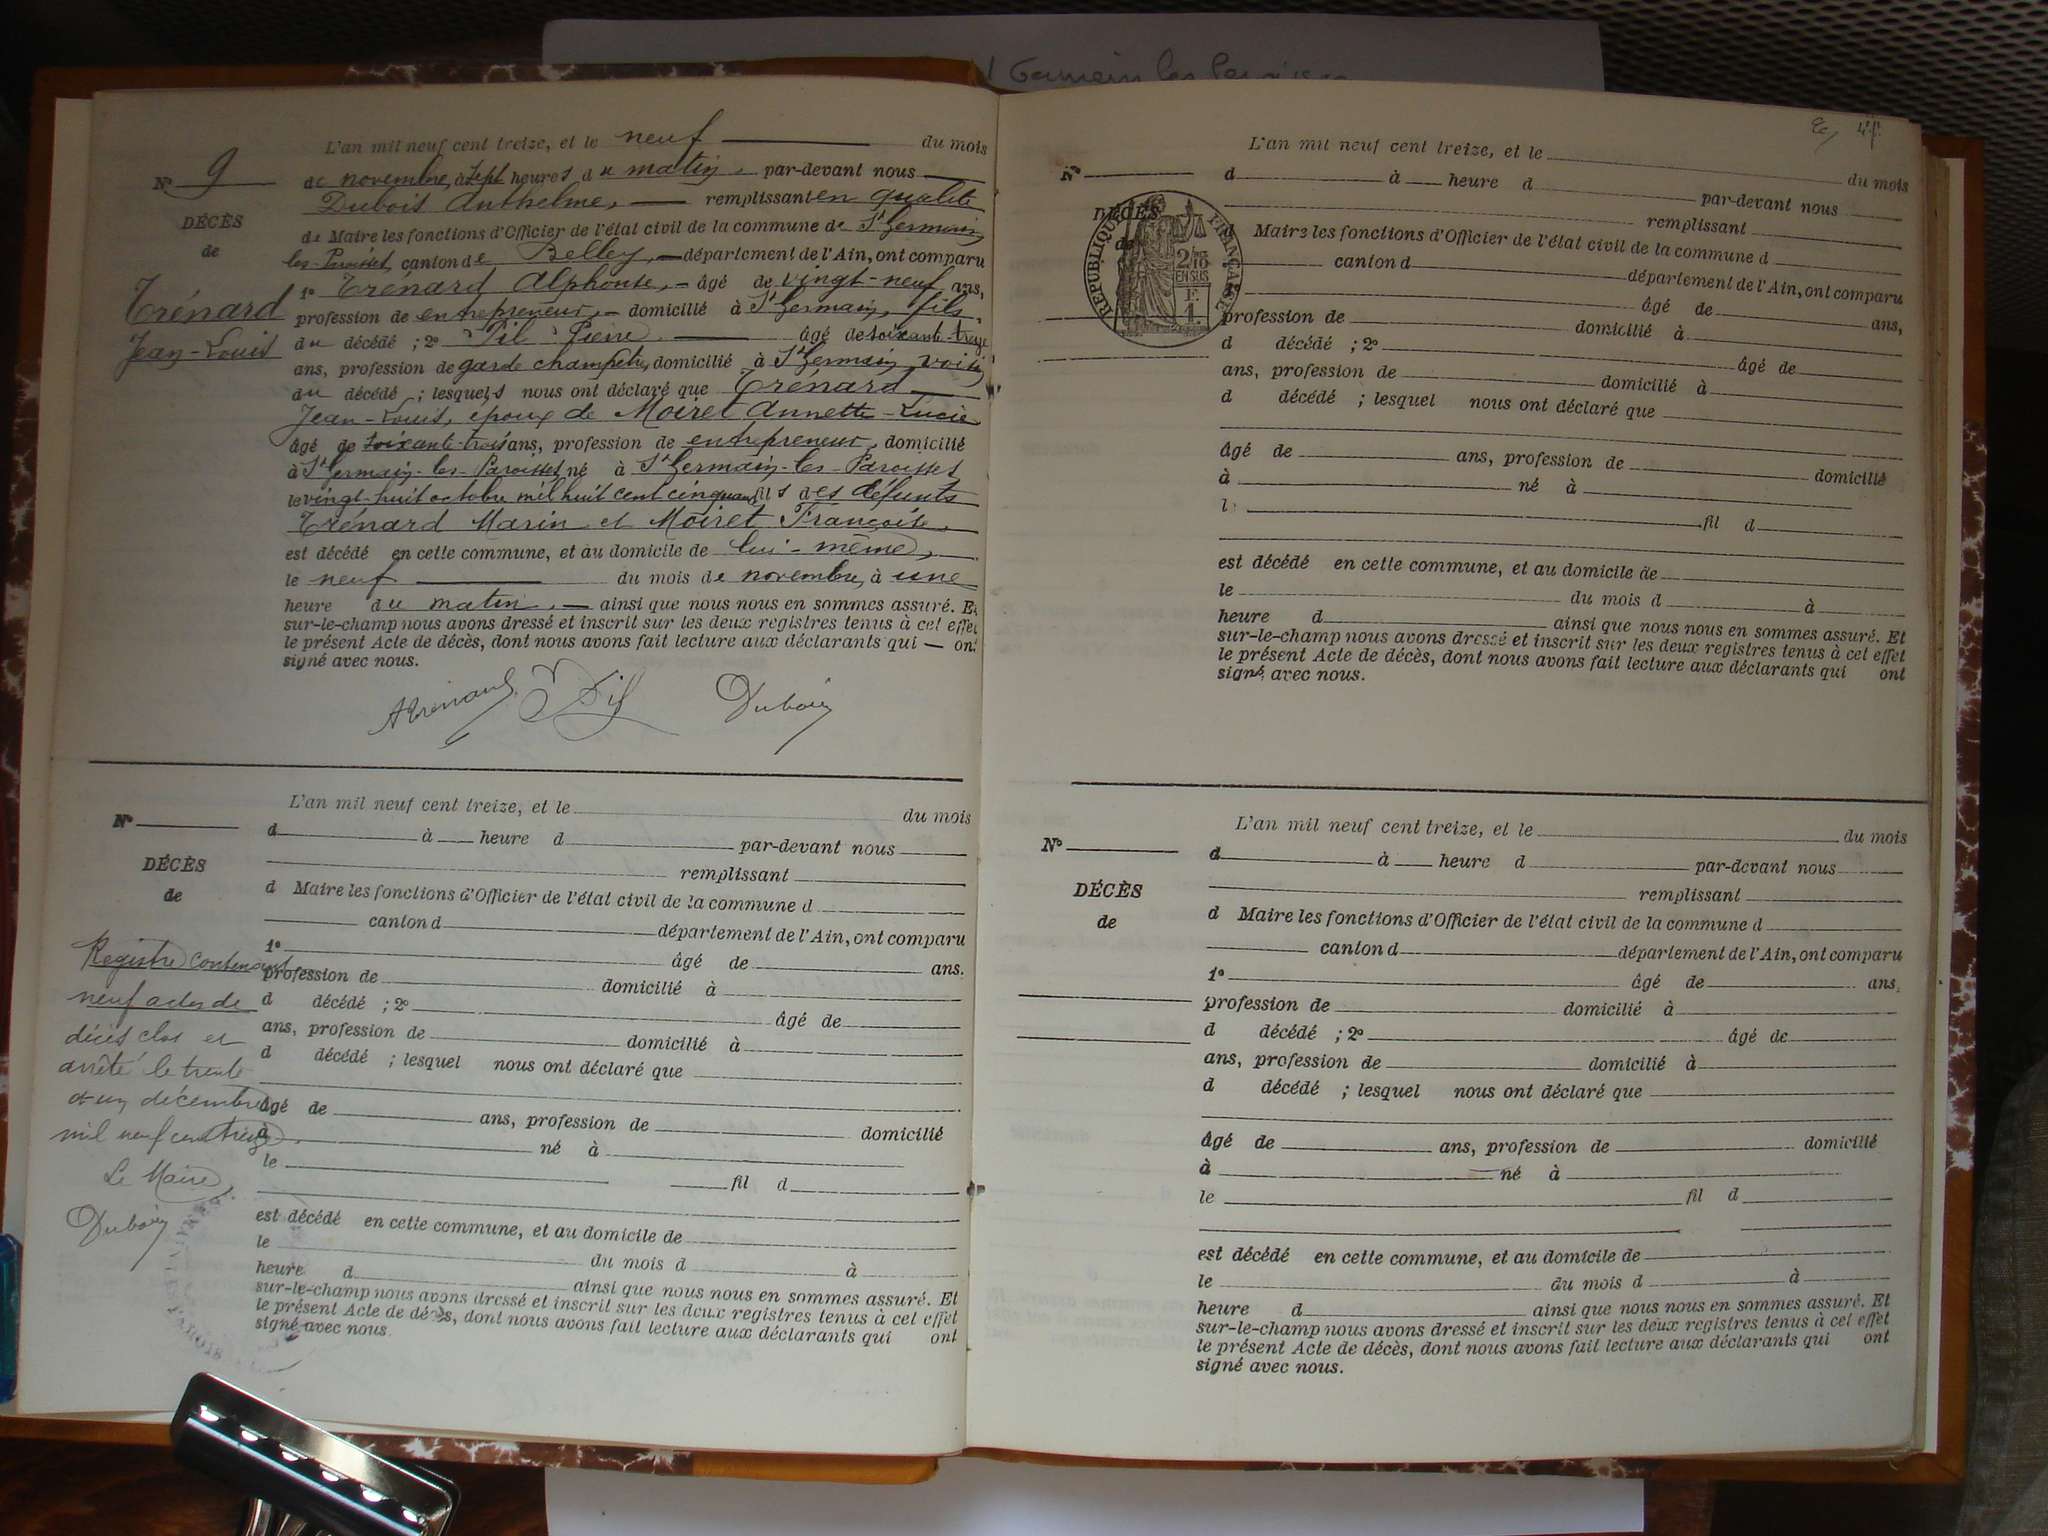 St Germain les Paroisses
L'an mil neuf cent treize, et le neuf du mois
de novembre, à sept heures du matin, par-devant nous
Dubois Anthelme, remplissant en qualité
de Maire les fonctions d'Officier de l'état civil de la commune de St Germain
les-Paroisses, canton de Belley, département de l'Ain, ont comparu
1º Trénard Alphonse, âgé de vingt-neuf ans,
profession de entrepreneur, domicilié à St Germain, fils
du décédé ; 2º Pil Pierre âgé de soixante-treize
ans, profession de garde champêtre, domicilié à St Germain, voisin
du décédé ; lesquels nous ont déclaré que Trénard
Jean-Louis, époux de Moiret Annette-Lucie
âgé de soixante-trois ans, profession de entrepreneur, domicilié
à St Germain-les-Paroisses, né à St Germain-les-Paroisses
le vingt-huit octobre mil huit cent cinquante fils des défunts
Trénard Marin et Moiret Françoise,
est décédé en cette commune, et au domicile de lui-même,
le neuf du mois de novembre, à une
heure du matin, ainsi que nous nous en sommes assuré. Et
sur-le-champ nous avons dressé et inscrit sur les deux registres tenus à cet effet
le présent Acte de décès, dont nous avons fait lecture aux déclarants qui ont
signé avec nous.
Nº 9
DÉCÈS
de
Trénard
Jean-Louis
ATrénard Pil Dubois
L'an mil neuf cent treize, et le du mois
d à heure d par-devant nous
remplissant
d Maire les fonctions d'Officier de l'état civil de la commune d
canton d département de l'Ain, ont comparu
1º âgé de ans.
profession de domicilié à
d décédé ; 2º âgé de
ans, profession de domicilié à
d décédé ; lesquel nous ont déclaré que
âgé de ans, profession de domicilié
à né à
le fil d
est décédé en cette commune, et au domicile de
le du mois d à
heure d ainsi que nous nous en sommes assuré. Et
sur-le-champ nous avons dressé et inscrit sur les deux registres tenus à cet effet
le présent Acte de décès, dont nous avons fait lecture aux déclarants qui ont
signé avec nous.
Nº
DÉCÈS
de
Registre contenant
neuf actes de
décès clos et
arrêté le trente
et un décembre
mil neuf cent treize
Le Maire
Dubois
L'an mil neuf cent treize, et le du mois
d à heure d par-devant nous
remplissant
d Maire les fonctions d'Officier de l'état civil de la commune d
canton d département de l'Ain, ont comparu
âgé de ans,
profession de domicilié à
d décédé ; 2º âgé de
ans, profession de domicilié à
d décédé ; lesquel nous ont déclaré que
âgé de ans, profession de domicilié
à né à
l fil d
est décédé en cette commune, et au domicile de
le du mois d à
heure d ainsi que nous nous en sommes assuré. Et
sur-le-champ nous avons dressé et inscrit sur les deux registres tenus à cet effet
le présent Acte de décès, dont nous avons fait lecture aux déclarants qui ont
signé avec nous.
Nº
DÉCÈS
de
RÉPUBLIQUE FRANÇAISE
EN SUS
L'an mil neuf cent treize, et le du mois
d à heure d par-devant nous
remplissant
d Maire les fonctions d'Officier de l'état civil de la commune d
canton d département de l'Ain, ont comparu
1º âgé de ans,
profession de domicilié à
d décédé ; 2º âgé de
ans, profession de domicilié à
d décédé ; lesquel nous ont déclaré que
âgé de ans, profession de domicilié
à né à
le fil d
est décédé en cette commune, et au domicile de
le du mois d à
heure d ainsi que nous nous en sommes assuré. Et
sur-le-champ nous avons dressé et inscrit sur les deux registres tenus à cet effet
le présent Acte de décès, dont nous avons fait lecture aux déclarants qui ont
signé avec nous.
Nº
DÉCÈS
de